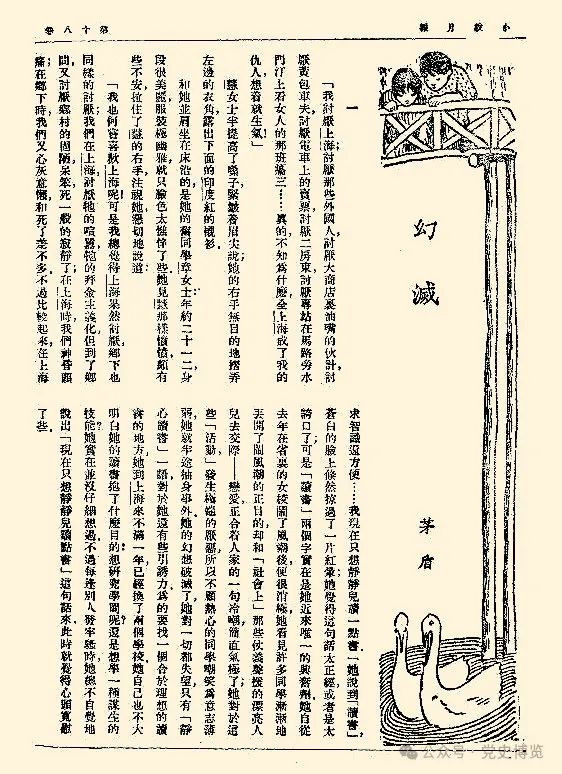 小說月報
第十八卷
幻滅
茅盾
一
「我討厭上海，討厭那些外國人，討厭大商店裏油嘴的伙計，討
厭黃包車夫，討厭電車上的賣票，討厭二房東，討厭專站在馬路旁水
門汀上看女人的那班癟三……真的，不知爲什麼全上海成了我的
仇人，想着就生氣！」
慧女士半提高了嗓子，緊皺着眉尖說；她的右手無目的地摺弄
左邊的衣角，露出下面的印度紅的襯衫。
和她並肩坐在床沿的是她的舊同學章女士：年約二十一二，身
段很美麗，服裝極幽雅，就只臉色太憔悴了些。她見慧那樣憤憤，頗有
些不安，拉住了慧的右手，注視她，懇切地說道：
「我也何嘗喜歡上海呢！可是我總覺得上海果然討厭，鄉下也
同樣的討厭；我們在上海，討厭牠的喧囂，牠的拜金主義化，但到了鄉
間，又討厭鄉村的固陋，呆笨，死一般的寂靜了；在上海時，我們神昏頭
痛；在鄉下時，我們又心灰意懶，和死了差不多。不過比較起來，在上海
求智識還方便……我現在只想靜靜兒讀一點書。」她說到「讀書」，
蒼白的臉上倏然掠過了一片紅暈；她覺得這句話太正經，或者是太
誇口了；可是「讀書」兩個字實在是她近來唯一的興奮劑。她自從
去年在省裏的女校鬧了風潮後，便很消極，她看見許多同學漸漸地
丟開了鬧風潮的正目的，却和「社會上」那些仗義聲援的漂亮人
兒去交際——戀愛，正合着人家的一句冷嘲，簡直氣極了；她對於這
些「活動」，發生極端的厭惡，所以不顧熱心的同學嘲笑爲意志薄
弱，她就半途抽身學外。她的幻想破滅了，她對一切都失望，只有「靜
心讀書」一語，對於她還有些引誘力。爲的要找一個合於理想的讀
書的地方，她到上海來不滿一年，已經換了兩個學校。她自己也不大
明白她的讀書抱了什麼目的：想研究學問呢？還是想學一種謀生的
技能？她實在並沒仔細想過。不過每逢別人發牢騷時，她總不自覺地
說出「現在只想靜靜兒讀點書」這句話來，此時就覺得心頭寬慰
了些。
公众号·党史博览